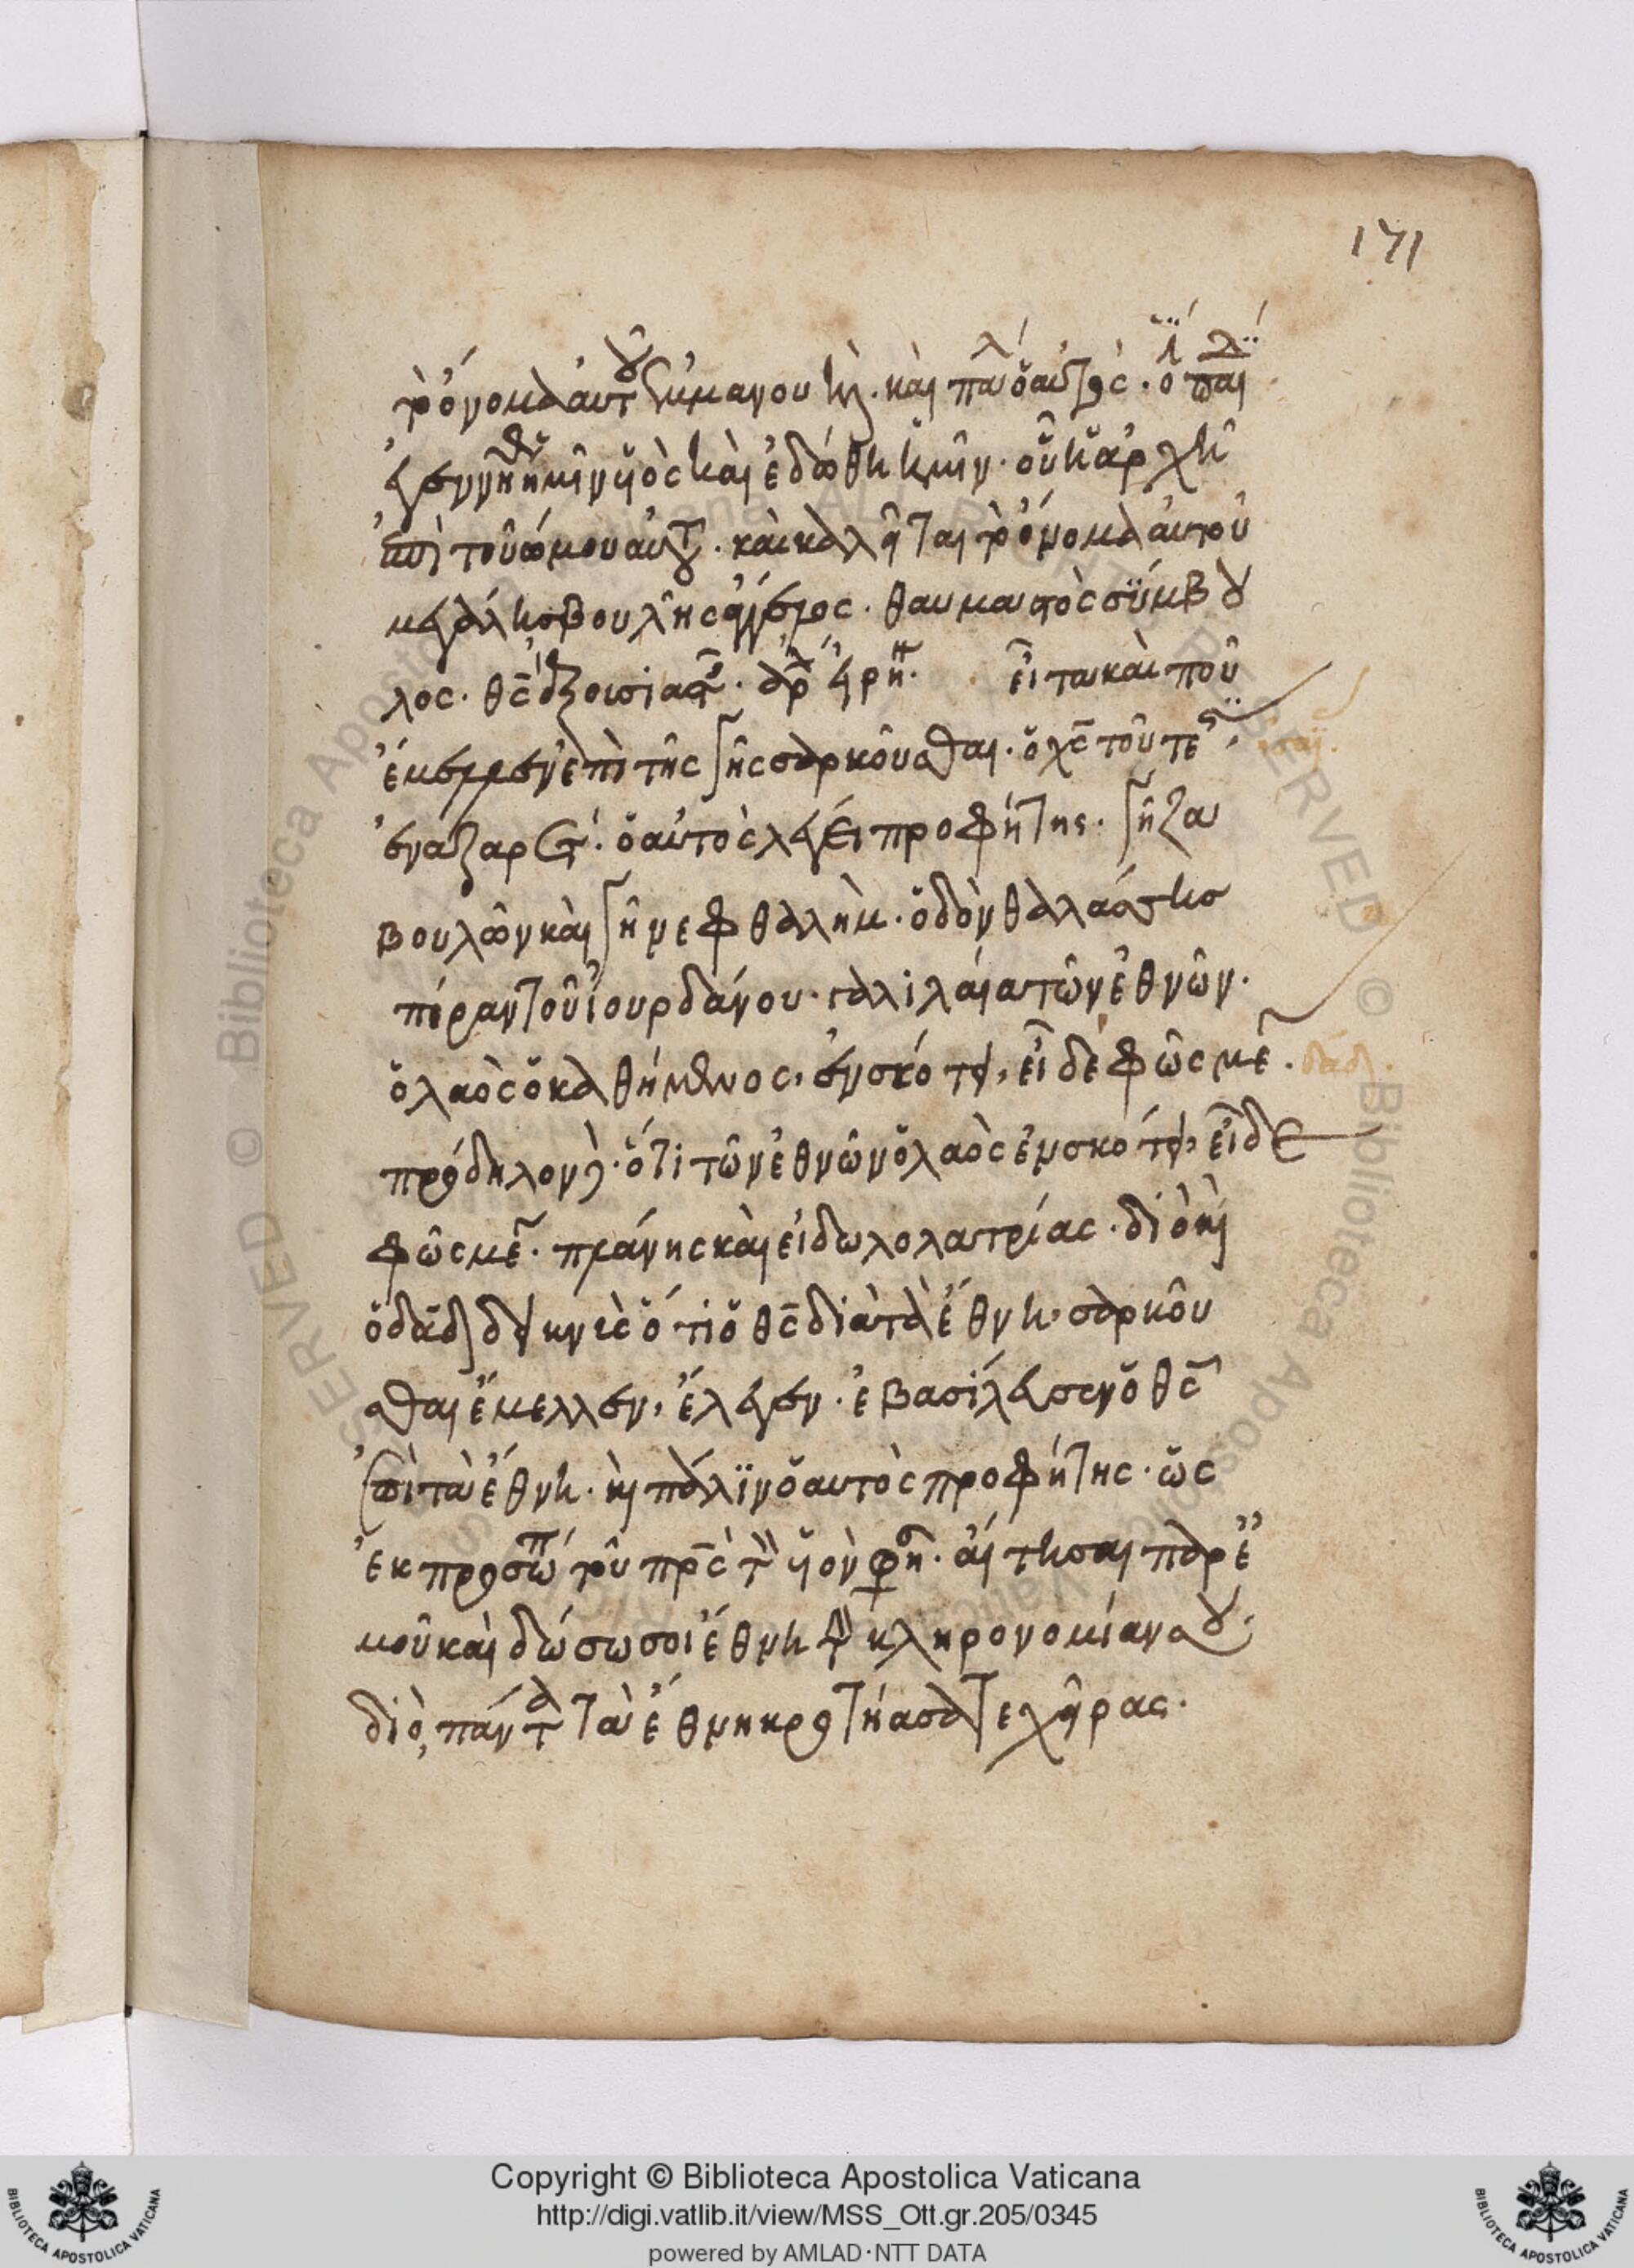 171
τὸ ὄνομα αὐτοῦ ἐμμανουήλ. καὶ πάλ ὁ αὐτὸς. ὅτι παι
ἐγεννήθη ἡμῖν ὑιὸς καὶ ἐδόθη ἡμῖν. οὗ ἡ ἀρχὴ
ἐπὶ τοῦ ὤμου αὐτοῦ. καὶ καλεῖται τὸ ὄνομα αὐτοῦ
μεγάλης βουλῆς ἄγγελος. θαυμαστὸς σύμβου
λος. θς ἐξουσιαστ. ἄρχ εἰρή. εἶτα καὶ ποῦ
ἔμελλεν ἐπὶ τῆς γῆς σαρκοῦσθαι. ὁ χς τοῦτέστιν
ἐν ναζαρέτ. ὁ αὐτὸς λέγει προφήτης. γῆ ζα
βουλὼν καὶ γῆ νεφθαλὴμ. ὁδὸν θαλάσσης
πέραν τοῦ ἰουρδάνου. γαλιλαία τῶν ἐθνῶν.
ὁ λαὸς ὁ καθήμενος, ἐν σκότει, εἶδε φῶς μέγ. δάδ.
πρόδηλον. ὅτι τῶν ἐθνῶν ὁ λαὸς ἐν σκότει, εἶδε
φῶς μέγ. πλάνης καὶ εἰδωλολατρίας. διὸ καὶ
ὁ δαδ δεικνὺς ὅτι ὁ θς διὰ τὰ ἔθνη. σαρκοῦ
σθαι ἔμελλεν, ἔλεγεν. ἐβασίλευσεν ὁ θς
ἐπὶ τὰ ἔθνη. καὶ πάλϊν ὁ αὐτὸς προφήτης. ὡς
ἐκ προσώπ τοῦ πρς πρὸς τὸν ὑιὸν φησὶν. αἴτησαι παρ' ἐ
μοῦ καὶ δώσω σοι ἔθνη τὴν κληρονομίαν σου.
διὸ, πάντα τὰ ἔθνη κροτήσατε χεῖρας.
Copyright © Biblioteca Apostolica Vaticana
http://digi.vatlib.it/view/MSS_Ott.gr.205/0345
powered by AMLAD·NTT DATA